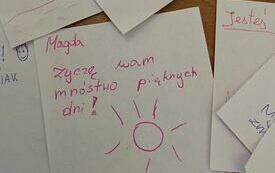 Magda
życzę wam
mnóstwo pięknych
dni!
Jesteś
!
JAK